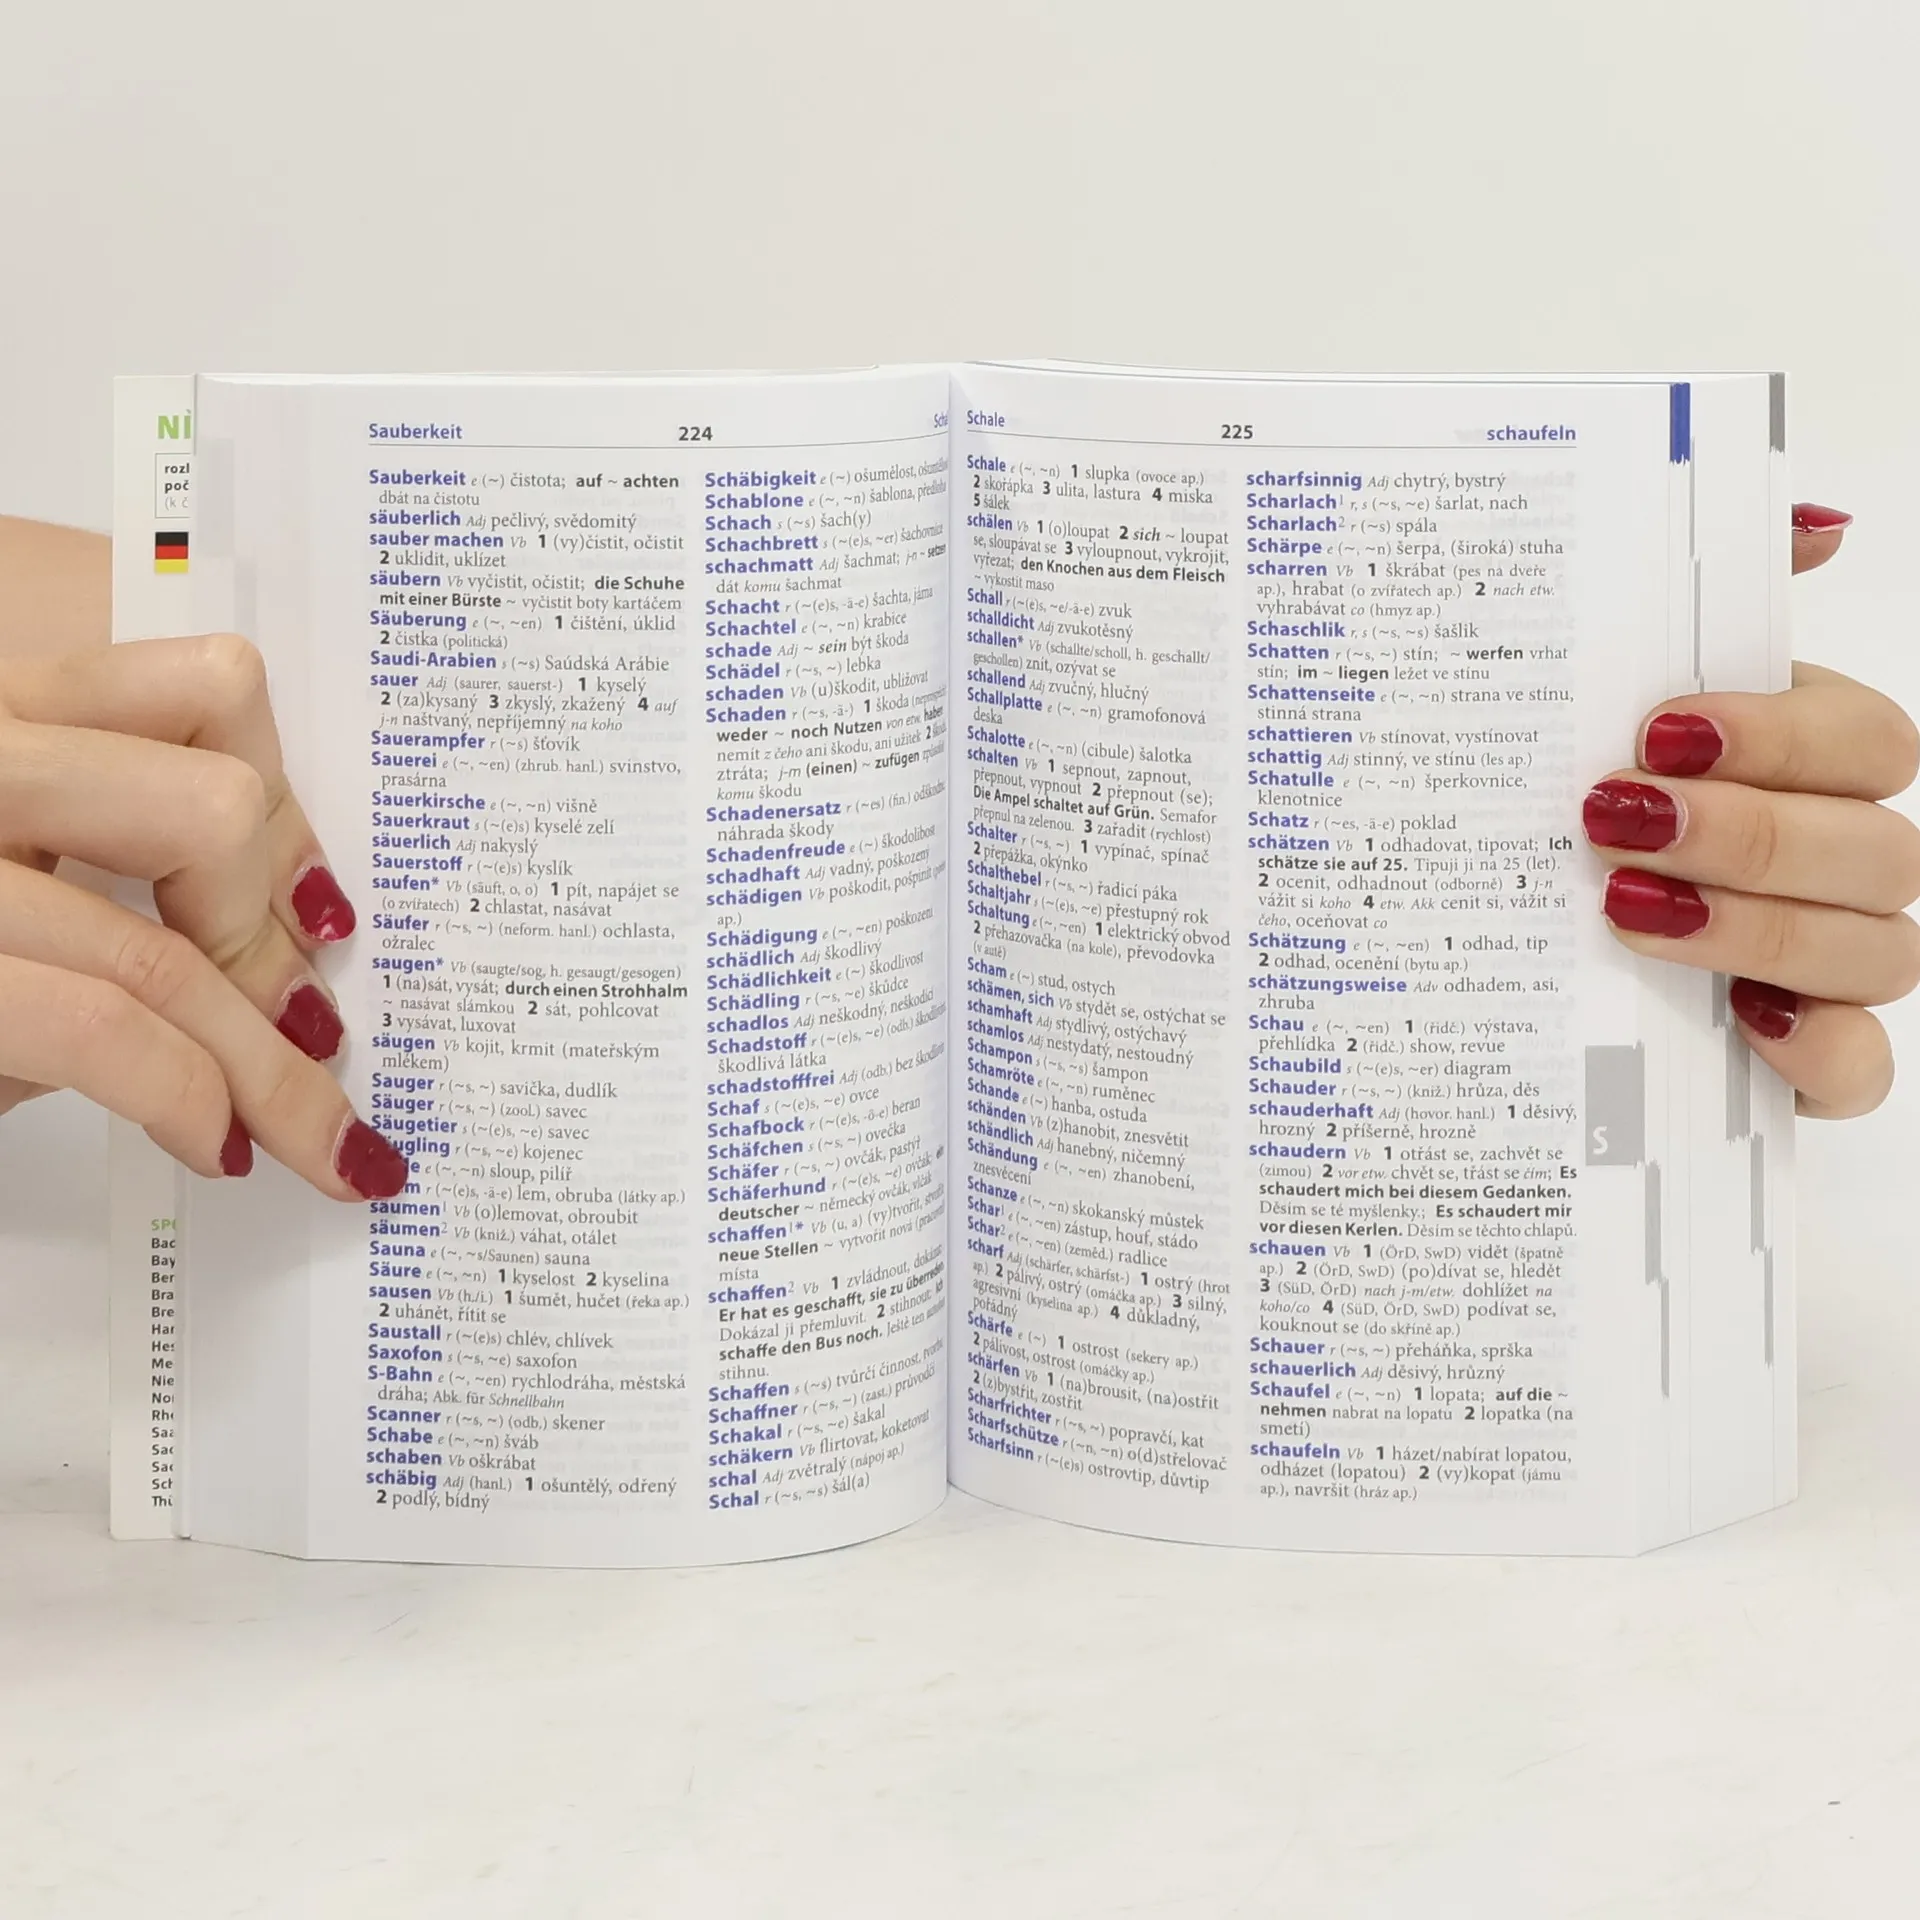 NÌ
rozl
poč
(k č
SPO
Bad
Bay
Ber
Bra
Bre
Har
Hes
Me
Nie
Nor
Rhe
Saa
Sac
Sac
Sch
Thü
Sauberkeit 224
Sauberkeit e (~) čistota; auf ~ achten
dbát na čistotu
säuberlich Adj pečlivý, svědomitý
sauber machen Vb 1 (vy)čistit, očistit
2 uklidit, uklízet
säubern Vb vyčistit, očistit; die Schuhe
mit einer Bürste ~ vyčistit boty kartáčem
Säuberung e (~, ~en) 1 čištění, úklid
2 čistka (politická)
Saudi-Arabien s (~s) Saúdská Arábie
sauer Adj (saurer, sauerst-) 1 kyselý
2 (za)kysaný 3 zkyslý, zkažený 4 auf
j-n naštvaný, nepříjemný na koho
Sauerampfer r (~s) šťovík
Sauerei e (~, ~en) (zhrub. hanl.) svinstvo,
prasárna
Sauerkirsche e (~, ~n) višně
Sauerkraut s (~(e)s) kyselé zelí
säuerlich Adj nakyslý
Sauerstoff r (~(e)s) kyslík
saufen* Vb (säuft, o, o) 1 pít, napájet se
(o zvířatech) 2 chlastat, nasávat
Säufer r (~s, ~) (neform. hanl.) ochlasta,
ožralec
saugen* Vb (saugte/sog, h. gesaugt/gesogen)
1 (na)sát, vysát; durch einen Strohhalm
~ nasávat slámkou 2 sát, pohlcovat
3 vysávat, luxovat
säugen Vb kojit, krmit (mateřským
mlékem)
Sauger r (~s, ~) savička, dudlík
Säuger r (~s, ~) (zool.) savec
Säugetier s (~(e)s, ~e) savec
ugling r (~s, ~e) kojenec
le e (~, ~n) sloup, pilíř
m r (~(e)s, -ä-e) lem, obruba (látky ap.)
säumen¹ Vb (o)lemovat, obroubit
säumen² Vb (kniž.) váhat, otálet
Sauna e (~, ~s/Saunen) sauna
Säure e (~, ~n) 1 kyselost 2 kyselina
sausen Vb (h./i.) 1 šumět, hučet (řeka ap.)
2 uhánět, řítit se
Saustall r (~(e)s) chlév, chlívek
Saxofon s (~s, ~e) saxofon
S-Bahn e (~, ~en) rychlodráha, městská
dráha; Abk. für Schnellbahn
Scanner r (~s, ~) (odb.) skener
Schabe e (~, ~n) šváb
schaben Vb oškrábat
schäbig Adj (hanl.) 1 ošuntělý, odřený
2 podlý, bídný
Schäbigkeit e (~) ošumělost,
Schablone e (~, ~n) šablona, předloha
Schach s (~s) šach(y)
Schachbrett s (~(e)s, ~er) šachovnice
schachmatt Adj šachmat; j-n ~ setzen
dát komu šachmat
Schacht r (~(e)s, -ä-e) šachta, jáma
Schachtel e (~, ~n) krabice
schade Adj ~ sein být škoda
Schädel r (~s, ~) lebka
schaden Vb (u)škodit, ubližovat
Schaden r (~s, -ä-) 1 škoda
weder ~ noch Nutzen von etw. haben
nemít z čeho ani škodu, ani užitek 2
ztráta; j-m (einen) ~ zufügen způsobit
komu škodu
Schadenersatz r (~es) (fin.)
náhrada škody
Schadenfreude e (~) škodolibost
schadhaft Adj vadný, poškozený
schädigen Vb poškodit, pošpinit
ap.)
Schädigung e (~, ~en) poškození
schädlich Adj škodlivý
Schädlichkeit e (~) škodlivost
Schädling r (~s, ~e) škůdce
schadlos Adj neškodný, neškodící
Schadstoff r (~(e)s, ~e) (odb.)
škodlivá látka
schadstofffrei Adj (odb.) bez škodlivin
Schaf s (~(e)s, ~e) ovce
Schafbock r (~(e)s, -ö-e) beran
Schäfchen s (~s, ~) ovečka
Schäfer r (~s, ~) ovčák, pastýř
Schäferhund r (~(e)s, ~e) ovčák;
deutscher ~ německý ovčák, vlčák
schaffen¹* Vb (u, a) (vy)tvořit,
neue Stellen ~ vytvořit nová
místa
schaffen² Vb 1 zvládnout, dokázat:
Er hat es geschafft, sie zu überreden
Dokázal ji přemluvit. 2 stihnout: Ich
schaffe den Bus noch. Ještě ten autobus
stihnu.
Schaffen s (~s) tvůrčí činnost, tvorba
Schaffner r (~s, ~) (zast.) průvodčí
Schakal r (~s, ~e) šakal
schäkern Vb flirtovat, koketovat
schal Adj zvětralý (nápoj ap.)
Schal r (~s, ~s) šál(a)
Schale 225 schaufeln
Schale e (~, ~n) 1 slupka (ovoce ap.)
2 skořápka 3 ulita, lastura 4 miska
5 šálek
schälen Vb 1 (o)loupat 2 sich ~ loupat
se, sloupávat se 3 vyloupnout, vykrojit,
vyřezat; den Knochen aus dem Fleisch
~ vykostit maso
Schall r (~(e)s, ~e/-ä-e) zvuk
schalldicht Adj zvukotěsný
schallen* Vb (schallte/scholl, h. geschallt/
geschollen) znít, ozývat se
schallend Adj zvučný, hlučný
Schallplatte e (~, ~n) gramofonová
deska
Schalotte e (~, ~n) (cibule) šalotka
schalten Vb 1 sepnout, zapnout,
přepnout, vypnout 2 přepnout (se);
Die Ampel schaltet auf Grün. Semafor
přepnul na zelenou. 3 zařadit (rychlost)
Schalter r (~s, ~) 1 vypínač, spínač
2 přepážka, okýnko
Schalthebel r (~s, ~) řadicí páka
Schaltjahr s (~(e)s, ~e) přestupný rok
Schaltung e (~, ~en) 1 elektrický obvod
2 přehazovačka (na kole), převodovka
(v autě)
Scham e (~) stud, ostych
schämen, sich Vb stydět se, ostýchat se
schamhaft Adj stydlivý, ostýchavý
schamlos Adj nestydatý, nestoudný
Schampon s (~s, ~s) šampon
Schamröte e (~, ~n) ruměnec
Schande e (~) hanba, ostuda
schänden Vb (z)hanobit, znesvětit
schändlich Adj hanebný, ničemný
Schändung e (~, ~en) zhanobení,
znesvěcení
Schanze e (~, ~n) skokanský můstek
Schar¹ e (~, ~en) zástup, houf, stádo
Schar² e (~, ~en) (zeměd.) radlice
scharf Adj (schärfer, schärfst-) 1 ostrý (hrot
ap.) 2 pálivý, ostrý (omáčka ap.) 3 silný,
agresivní (kyselina ap.) 4 důkladný,
pořádný
Schärfe e (~) 1 ostrost (sekery ap.)
2 pálivost, ostrost (omáčky ap.)
schärfen Vb 1 (na)brousit, (na)ostřit
2 (z)bystřit, zostřit
Scharfrichter r (~s, ~) popravčí, kat
Scharfschütze r (~n, ~n) o(d)střelovač
Scharfsinn r (~(e)s) ostrovtip, důvtip
scharfsinnig Adj chytrý, bystrý
Scharlach¹ r, s (~s, ~e) šarlat, nach
Scharlach² r (~s) spála
Schärpe e (~, ~n) šerpa, (široká) stuha
scharren Vb 1 škrábat (pes na dveře
ap.), hrabat (o zvířatech ap.) 2 nach etw.
vyhrabávat co (hmyz ap.)
Schaschlik r, s (~s, ~s) šašlik
Schatten r (~s, ~) stín; ~ werfen vrhat
stín; im ~ liegen ležet ve stínu
Schattenseite e (~, ~n) strana ve stínu,
stinná strana
schattieren Vb stínovat, vystínovat
schattig Adj stinný, ve stínu (les ap.)
Schatulle e (~, ~n) šperkovnice,
klenotnice
Schatz r (~es, -ä-e) poklad
schätzen Vb 1 odhadovat, tipovat; Ich
schätze sie auf 25. Tipuji ji na 25 (let).
2 ocenit, odhadnout (odborně) 3 j-n
vážit si koho 4 etw. Akk cenit si, vážit si
čeho, oceňovat co
Schätzung e (~, ~en) 1 odhad, tip
2 odhad, ocenění (bytu ap.)
schätzungsweise Adv odhadem, asi,
zhruba
Schau e (~, ~en) 1 (řidč.) výstava,
přehlídka 2 (řidč.) show, revue
Schaubild s (~(e)s, ~er) diagram
Schauder r (~s, ~) (kniž.) hrůza, děs
schauderhaft Adj (hovor. hanl.) 1 děsivý,
hrozný 2 příšerně, hrozně
schaudern Vb 1 otřást se, zachvět se
(zimou) 2 vor etw. chvět se, třást se čím; Es
schaudert mich bei diesem Gedanken.
Děsím se té myšlenky.; Es schaudert mir
vor diesen Kerlen. Děsím se těchto chlapů.
schauen Vb 1 (ÖrD, SwD) vidět (špatně
ap.) 2 (ÖrD, SwD) (po)dívat se, hledět
3 (SüD, ÖrD) nach j-m/etw. dohlížet na
koho/co 4 (SüD, ÖrD, SwD) podívat se,
kouknout se (do skříně ap.)
Schauer r (~s, ~) přeháňka, sprška
schauerlich Adj děsivý, hrůzný
Schaufel e (~, ~n) 1 lopata; auf die ~
nehmen nabrat na lopatu 2 lopatka (na
smetí)
schaufeln Vb 1 házet/nabírat lopatou,
odházet (lopatou) 2 (vy)kopat (jámu
ap.), navršit (hráz ap.)
S